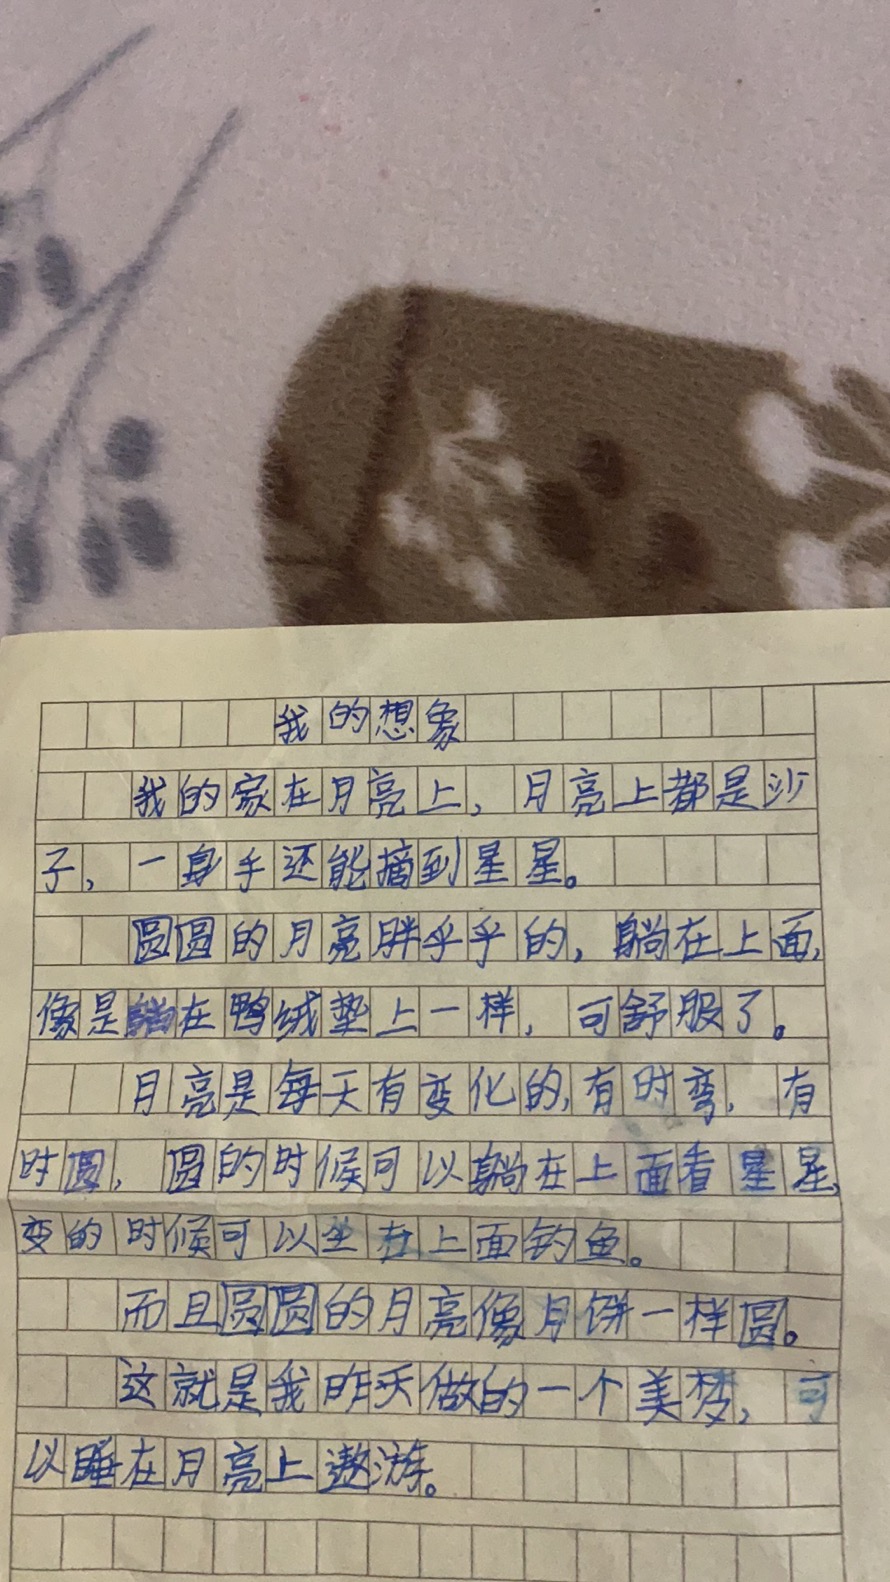 我的想象
我的家在月亮上，月亮上都是沙
子，一身手还能摘到星星。
圆圆的月亮胖乎乎的，躺在上面，
像是躺在鸭绒垫上一样，可舒服了。
月亮是每天有变化的，有时弯，有
时圆，圆的时候可以躺在上面看星星，
变的时候可以坐在上面钓鱼。
而且圆圆的月亮像月饼一样圆。
这就是我昨天做的一个美梦，可
以睡在月亮上遨游。